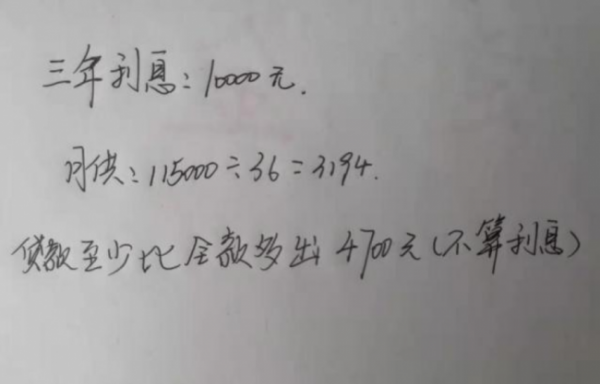 三年利息:10000元.
月供:115000÷36=3194.
贷款至少比全款多出4700元(不算利息)